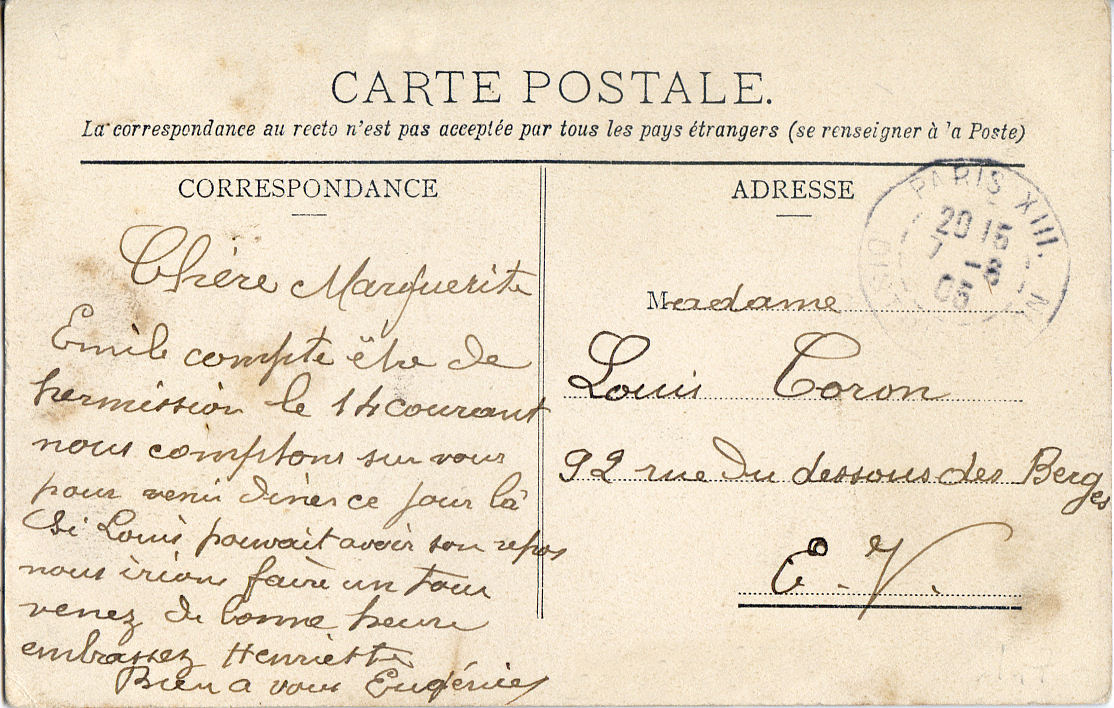 CARTE POSTALE.
La correspondance au recto n'est pas acceptée par tous les pays étrangers (se renseigner à la Poste)
CORRESPONDANCE
Chère Marguerite
Emile compte être de
permission le 14 courant
nous comptons sur vous
pour venir diner ce jour là
Si Louis pouvait avoir son repos
nous irions faire un tour
venez de bonne heure
embrassez Henriette
Bien a vous Eugénie
ADRESSE
PARIS XIII.
20 15
7 - 8
05
DIST
Madame
Louis Coron
92 rue du dessous des Berges
E. V.